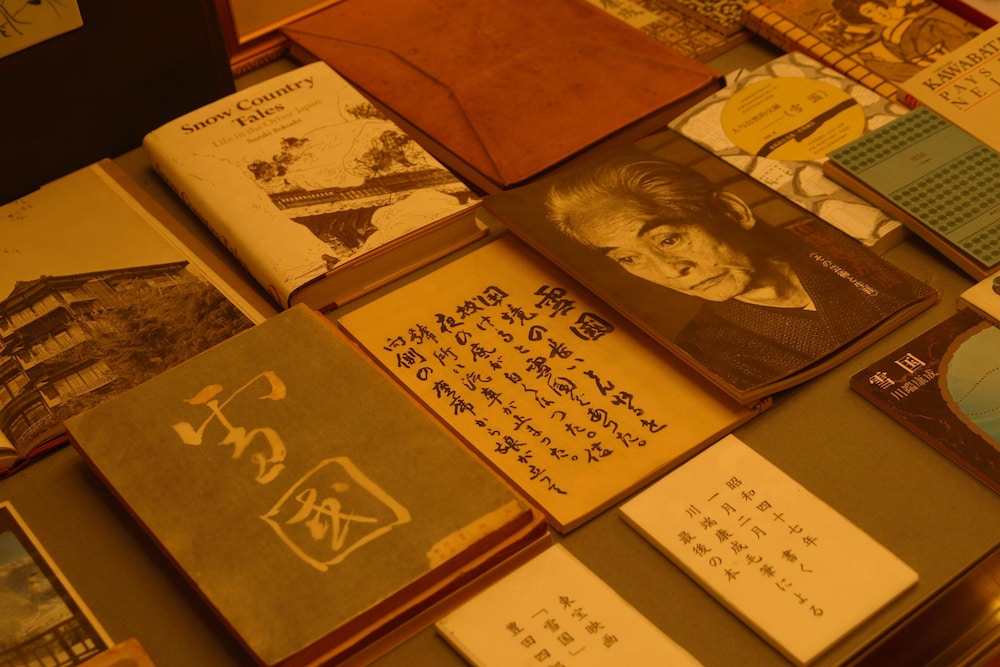 Snow Country
Tales
Life in the Other Japan
Suzuki Bokushi
KAWABAT
PAYS
NE
(雪国)
雪国
国境の長いとんねるを
抜けると雪国であった。
夜の底が白くなった。信
號所に汽車が止まった。
向側の座席から娘が立って
雪国
川端康成
雪国
昭和四十七年
一月二月 書く
川端康成毛筆による
最後の本
東宝映画
「雪国」
豊田四